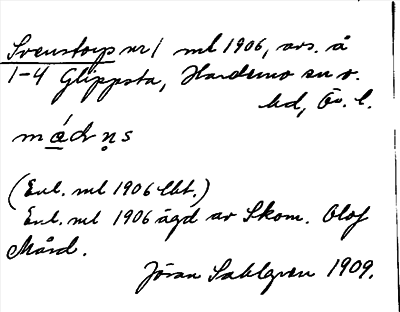 Svenstorps nr 1 ml 1906, avs. å
1-4 Glippsta, Hardemo sn o.
hd, Ör. l.
mǽdṇs
(Enl. ml 1906 Ebt.)
Enl. ml 1906 ägd av Skom. Olof
Mård.
Jöran Sahlgren 1909.